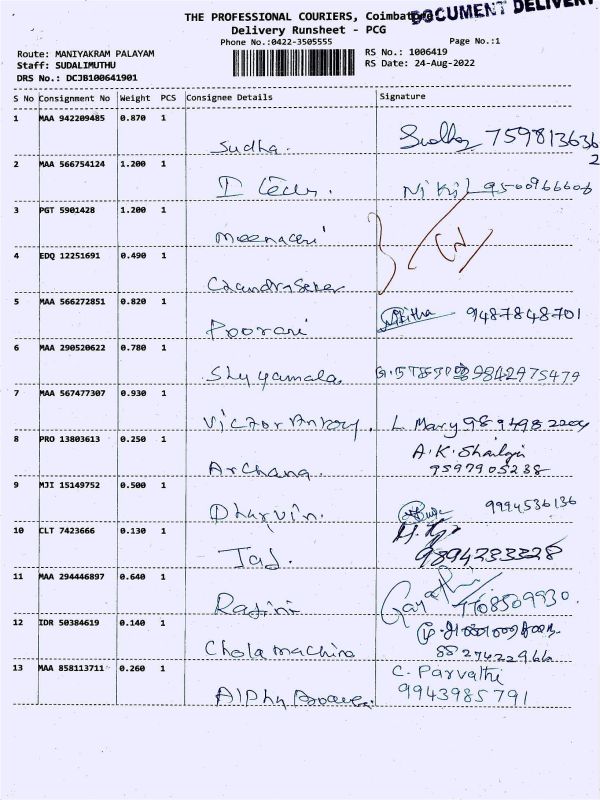 DOCUMENT DELIVERY
THE PROFESSIONAL COURIERS, Coimbatore
Delivery Runsheet - PCG
Phone No.:0422-3505555
Page No.:1
Route: MANIYAKRAM PALAYAM
RS No.: 1006419
Staff: SUDALIMUTHU
RS Date: 24-Aug-2022
DRS No.: DCJB100641901
S No Consignment No Weight PCS Consignee Details Signature
1 MAA 942209485 0.870 1 Sudha. Sudha 7598136362
2 MAA 566754124 1.200 1 Nikil 9500966606
3 PGT 5901428 1.200 1
4 EDQ 12251691 0.490 1 Chandraseker
5 MAA 566272851 0.820 1 Poorani 9487848701
6 MAA 290520622 0.780 1 Shyyamala 9842975479
7 MAA 567477307 0.930 1 Victor Antony. L Mary
8 PRO 13803613 0.250 1 Archana. A.K. Shailaja
9597905238
9 MJI 15149752 0.500 1 Dharvin. 9994536136
10 CLT 7423666 0.130 1 9894233328
11 MAA 294446897 0.640 1 Rajini
12 IDR 50384619 0.140 1 Chola machine
8827422966
13 MAA 858113711 0.260 1 C. Parvathi
9943985791